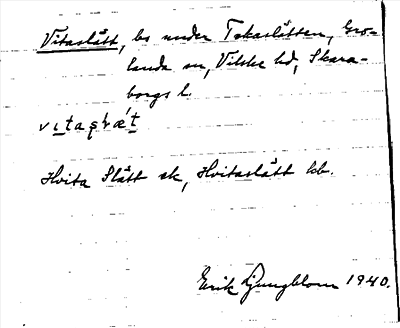 Vitaslätt, bs under Tokaslätten, Gro-
landa sn, Vilske hd, Skara-
borgs l.
Hvita Slätt sk, Hvitaslätt kb.
Erik Ljungblom 1940.